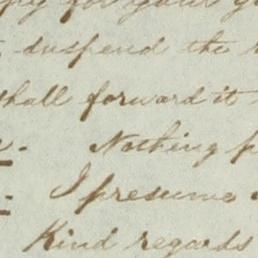 for your
suspend the
shall forward it
Nothing
I presume
Kind regards